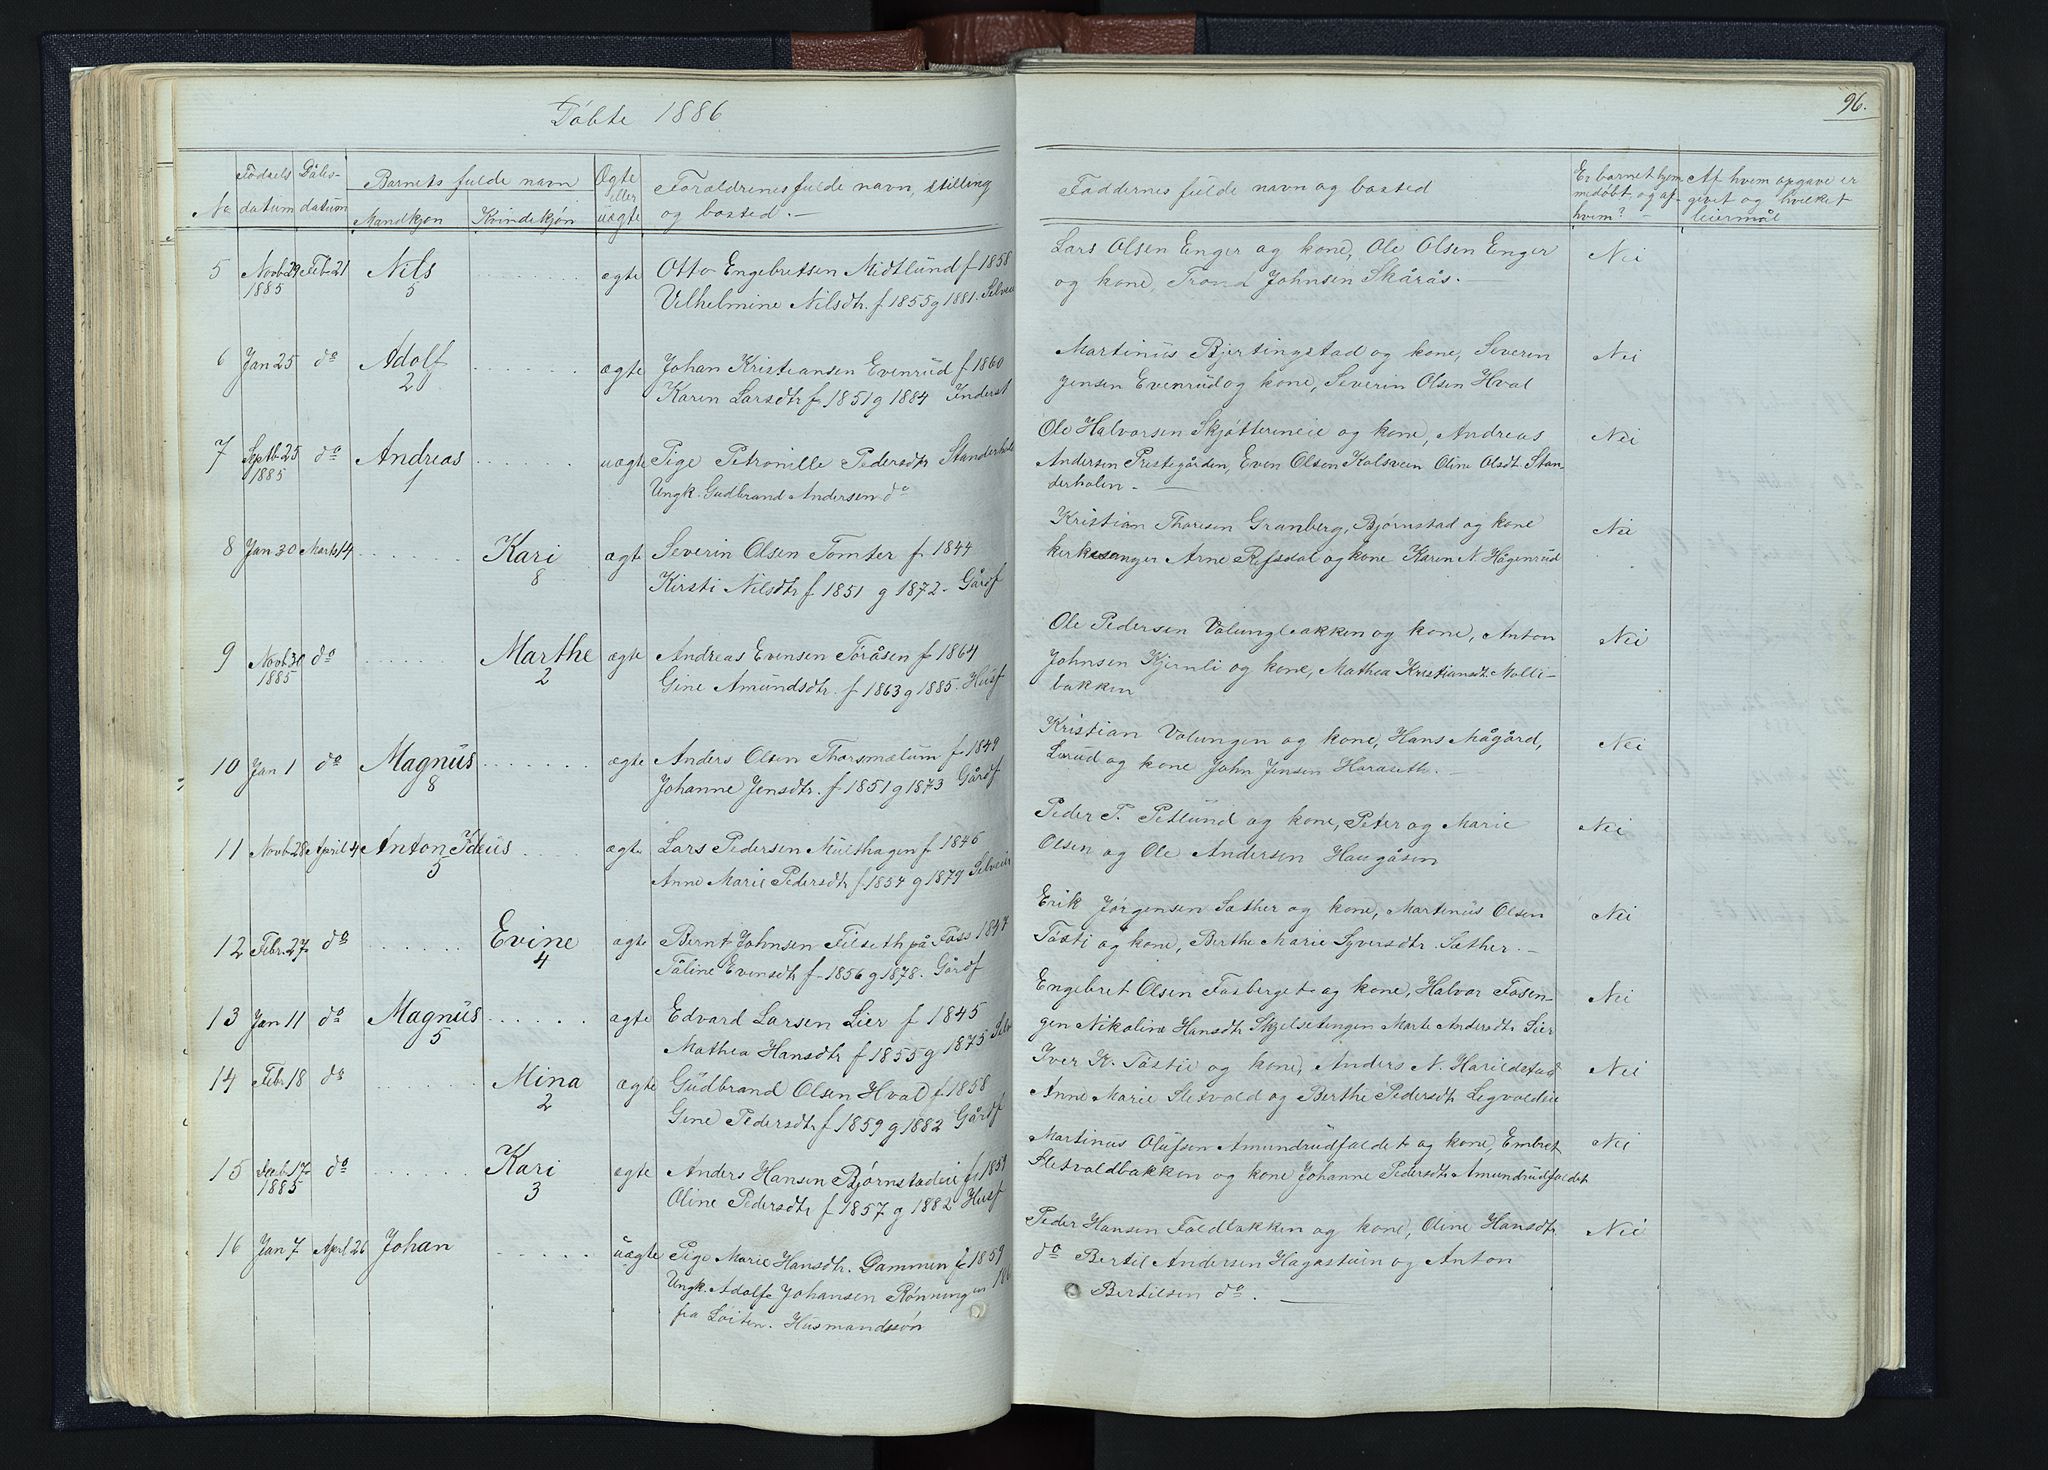 Döbte 1886
96.
No
Fødsels datum
Dåbs- datum
Barnets fulde navn
Mandkjøn
Kvindekjøn
Ægte eller uægte
Forældrenes fulde navn, stilling
og bosted. —
Faddernes fulde navn og bosted
Er barnet hjemmedøbt og af hvem?
Af hvem opgave er givet og hvilket leiermål
5 Novb 29 1885 Feb 21 Nils 5 ægte Otto Engebretsen Midtlund f 1858
Vilhelmine Nilsdtr. f 1855 g 1881. Selveier
Lars Olsen Enger og kone, Ole Olsen Enger
og kone, Trond Johnsen Skårås. —
Nei
6 Jan 25 do Adolf 2 ægte Johan Kristiansen Evenrud f 1860
Karen Larsdtr f 1851 g 1884 Inderst
Martinus Bjertingstad og kone, Severin
Jensen Evenrud og kone, Severin Olsen Hval
Nei
7 Septb 25 1885 do Andreas 1 uægte Pige Petronille Pedersdtr Standerhol
Ungk. Gudbrand Andersen do
Ole Halvorsen Skjøttereneie og kone, Andreas
Andersen Prestegården, Even Olsen Kolsveen Oline Olsdt. Stan-
derholen. —
Nei
8 Jan 30 Marts 14 Kari 8 ægte Severin Olsen Tomter f 1844
Kirsti Nilsdtr f 1851 g 1872. Gårdf
Kristian Thoresen Granberg, Bjørnstad og kone
kirkesanger Arne Refsdal og kone Karen N. Hågenrud
Nei
9 Novb 30 1885 do Marthe 2 ægte Andreas Evensen Töråsen f 1864
Gine Amundsdtr. f 1863 g 1885. Husf
Ole Pedersen Volungbakken og kone, Anton
Johnsen Kjernli og kone, Mathea Kristiansdt. Molle-
bakken
Nei
10 Jan 1 do Magnus 8 ægte Anders Olsen Thorsmælum f 1849
Johanne Jensdtr. f 1851 g 1873 Gårdf
Kristian Volungen og kone, Hans Mågård,
Lørud og kone John Jensen Haraseth. —
Nei
11 Novb 28 April 4 Anton 5 ægte Lars Pedersen Mülthagen f 1846
Anne Marie Pedersdtr f 1854 g 1879 Selveier
Peder P. Petlund og kone, Peter og Marie
Olsen og Ole Andersen Haugåsen
Nei
12 Febr. 27 do Evine 4 ægte Bernt Johnsen Filseth på Foss 1847
Tåline Evensdtr f 1856 g 1878. Gårdf
Erik Jørgensen Sæther og kone, Martinus Olsen
Tösti og kone, Berthe Marie Syversdtr. Sæther. —
Nei
13 Jan 11 do Magnus 5 ægte Edvard Larsen Lier f 1845
Mathea Hansdtr f 1855 g 1875 Selv
Engebret Olsen Fosberget og kone, Halvor Fosen-
gen Nikoline Hansdtr Skjelsetengen Marte Andersdtr Lier
Nei
14 Febr 18 do Mina 2 ægte Gudbrand Olsen Hval f 1858
Gine Pedersdtr f 1859 g 1882 Gårdf
Iver K. Tostie og kone, Anders N. Harildstad
Anne Marie Sletvold og Berthe Pedersdtr Legvoldeie
Nei
15 Feb 17 1885 do Kari 3 ægte Anders Hansen Bjørnstadeie f 1859
Oline Pedersdtr f 1857 g 1882 Husf
Martinus Olufsen Amundrudfaldet og kone, Embret
Sletvoldbakken og kone Johanne Pedersdtr Amundrudfaldet
Nei
16 Jan 7 April 26 Johan uægte Pige Marie Hansdtr. Dammen f 1859
Ungk. Adolfe Johansen Rønningen 186
fra Løiten. Husmandssøn
Peder Hansen Foldbakken og kone, Oline Hansdtr.
do Bertil Andersen Hagastuen og Anton
Bertilsen do. —
Nei